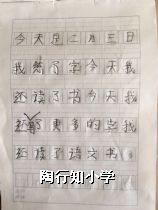 今天是二月三日
我练了字今天我
还读了书今天我
还写更多的字我
还读了语文书
陶行知小学